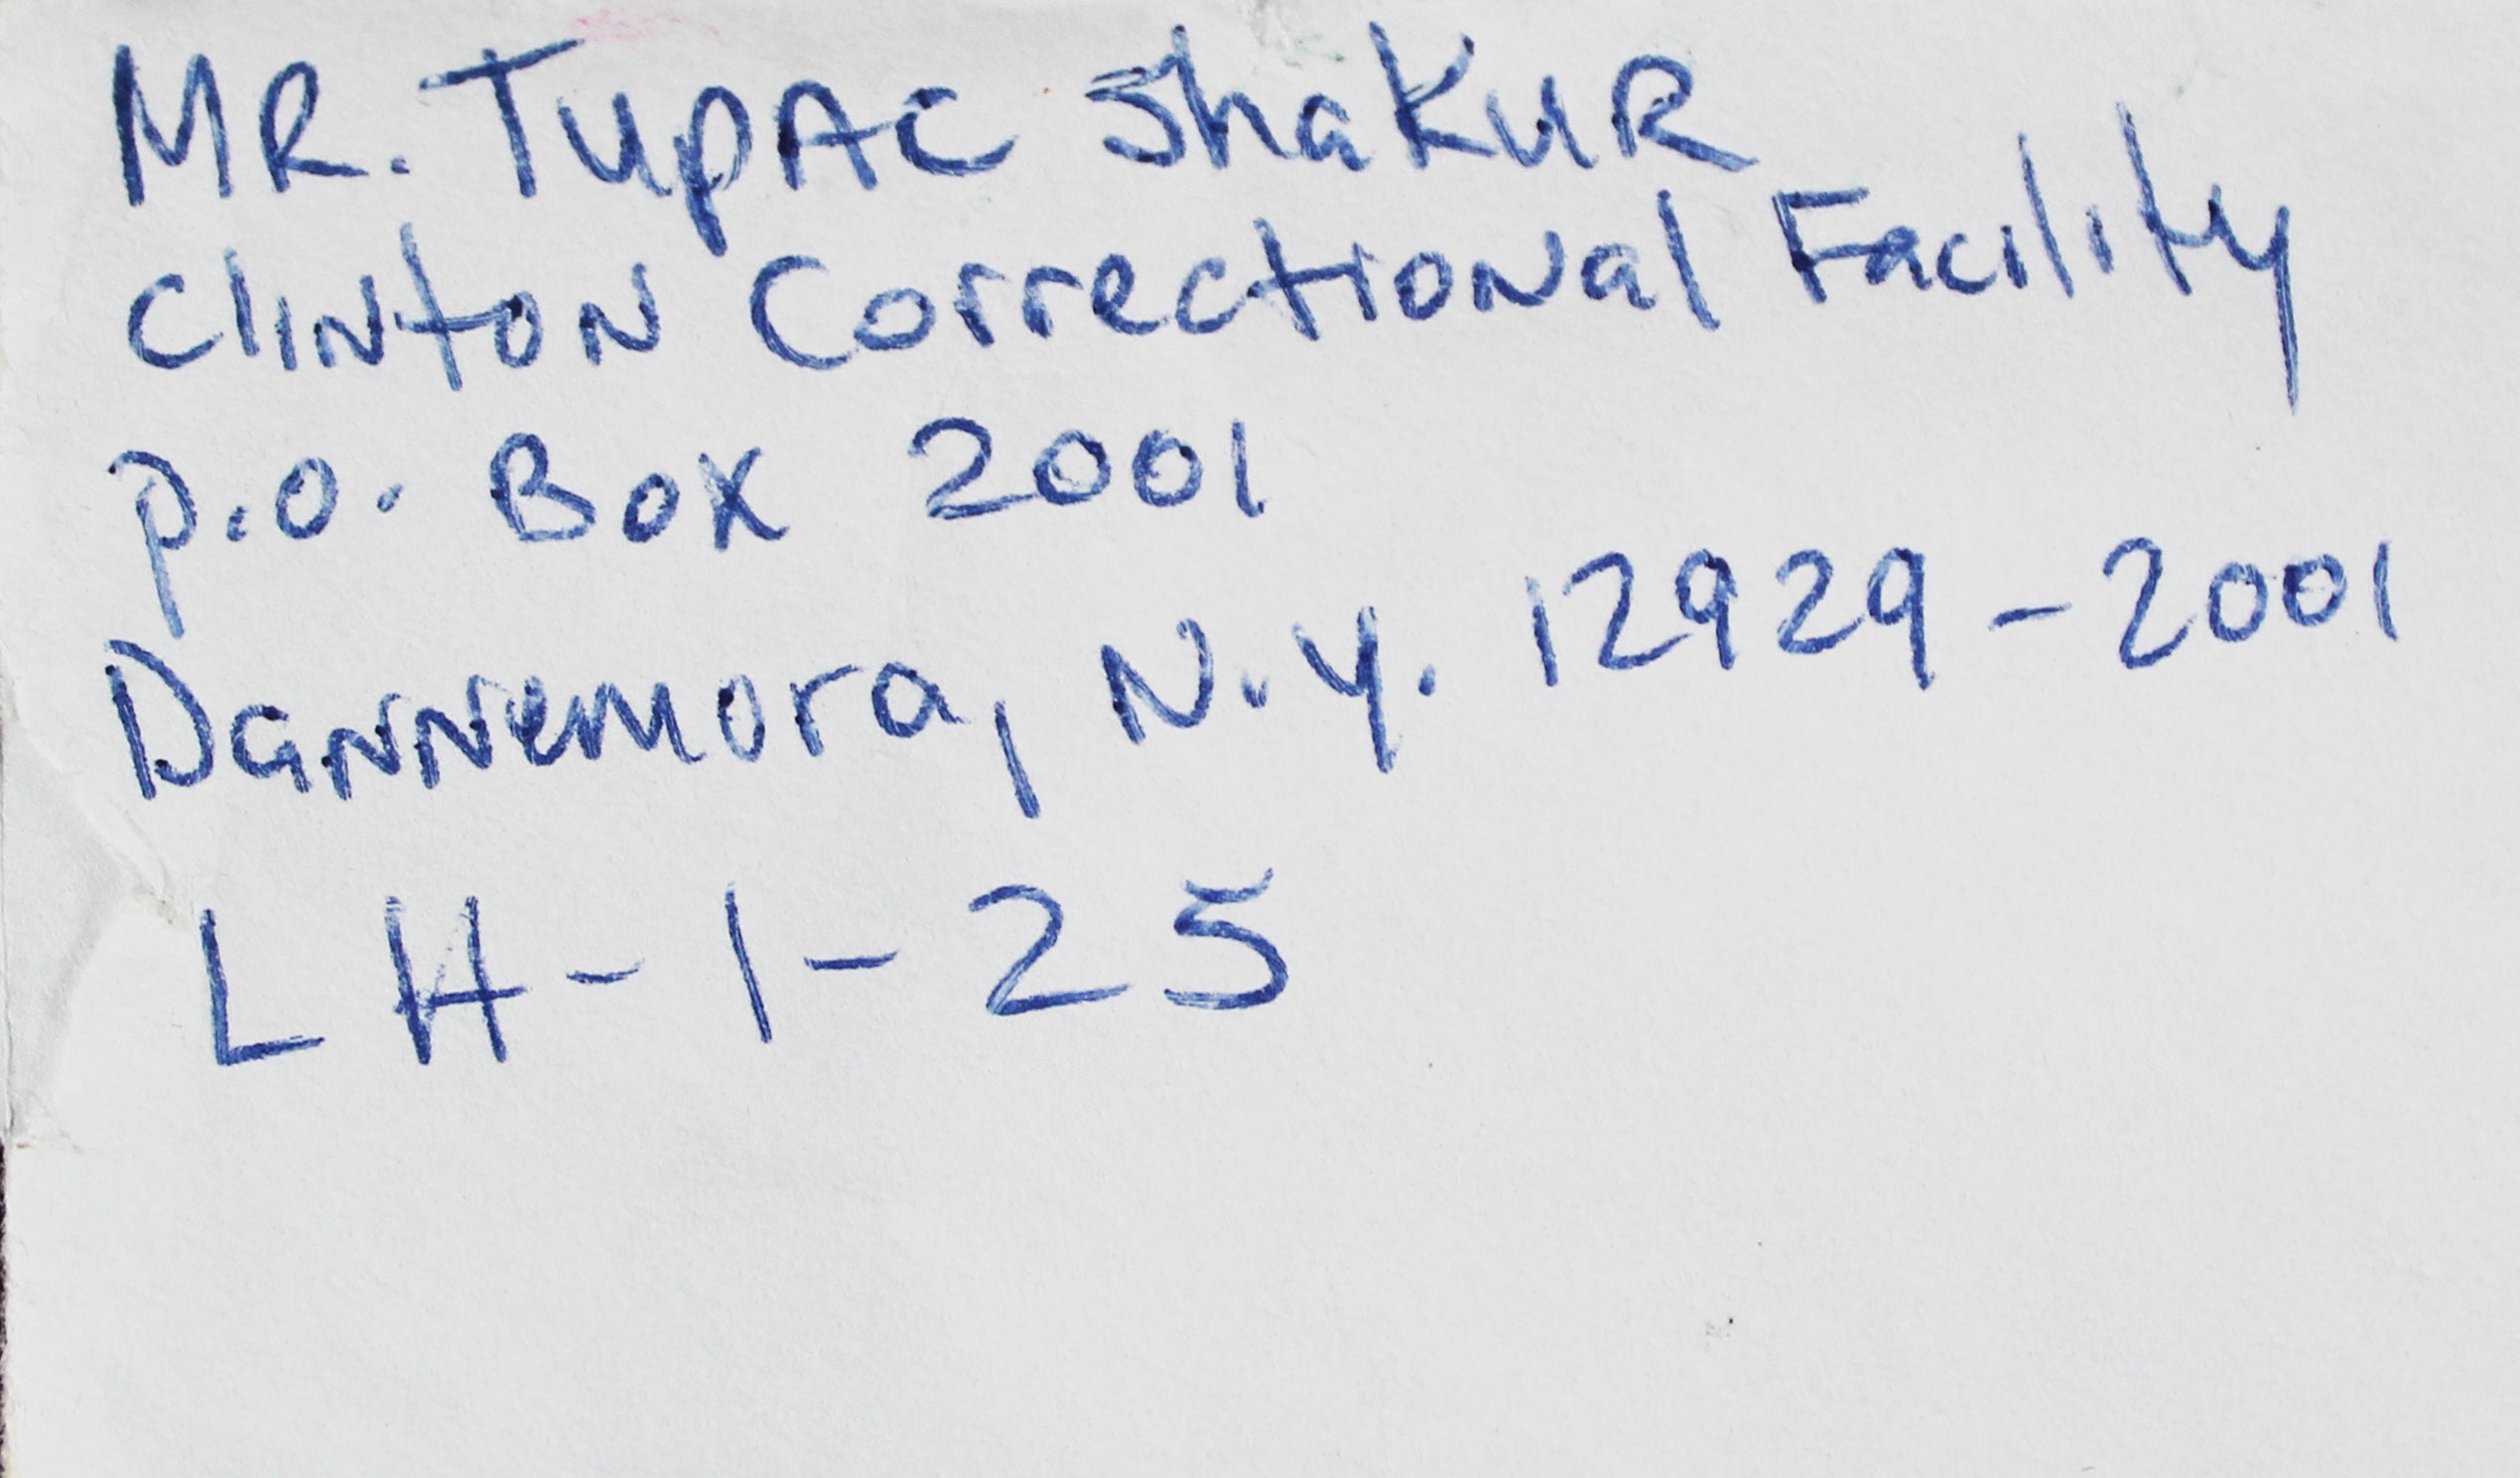 MR. TupAC ShaKuR
ClINtoN CorrectioNal Facility
P.O. Box 2001
DaNNemora, N.Y. 12929-2001
LH-1-25